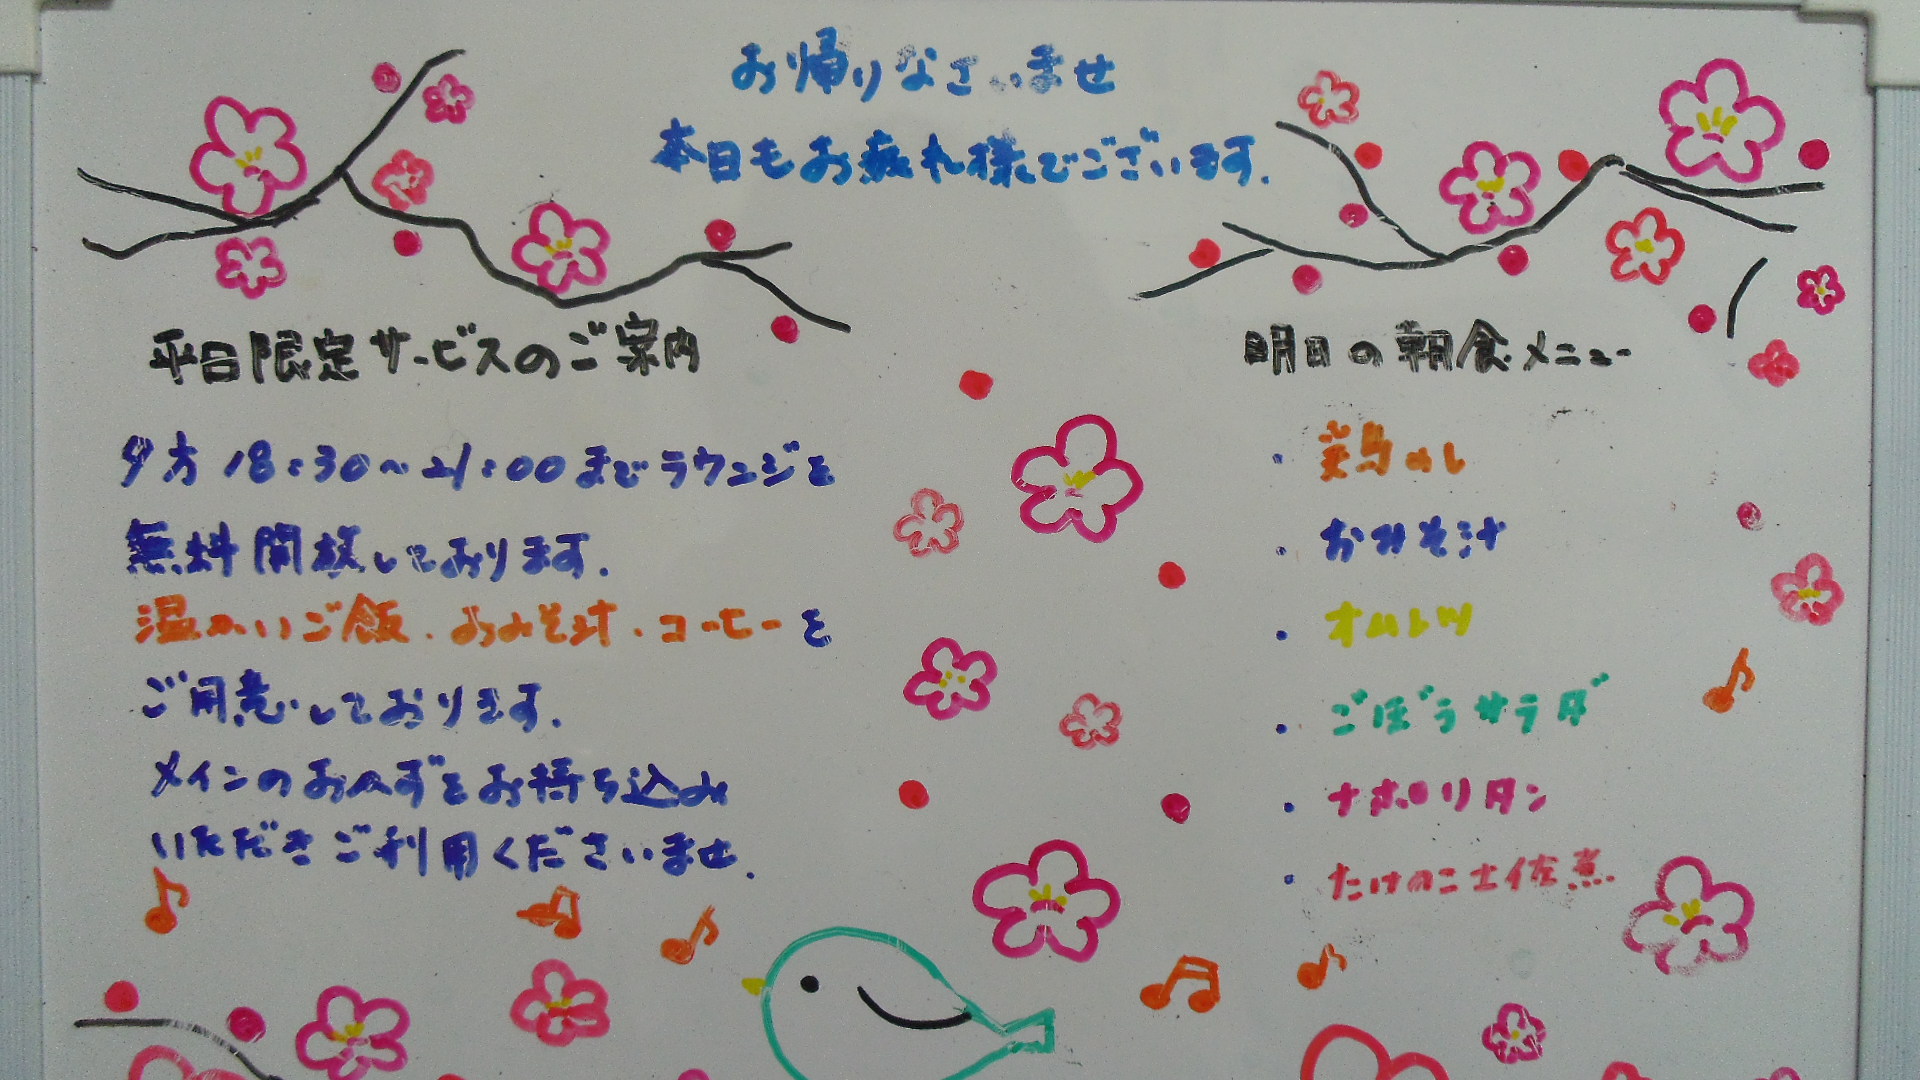 お帰りなさいませ
本日もお疲れ様でございます.
平日限定サービスのご案内
夕方18:30〜21:00までラウンジを
無料開放しております.
温かいご飯・おみそ汁・コーヒーを
ご用意しております.
メインのおかずをお持ち込み
いただきご利用くださいませ.
明日の朝食メニュー
・鶏めし
・おみそ汁
・オムレツ
・ごぼうサラダ
・ナポリタン
・たけのこ土佐煮